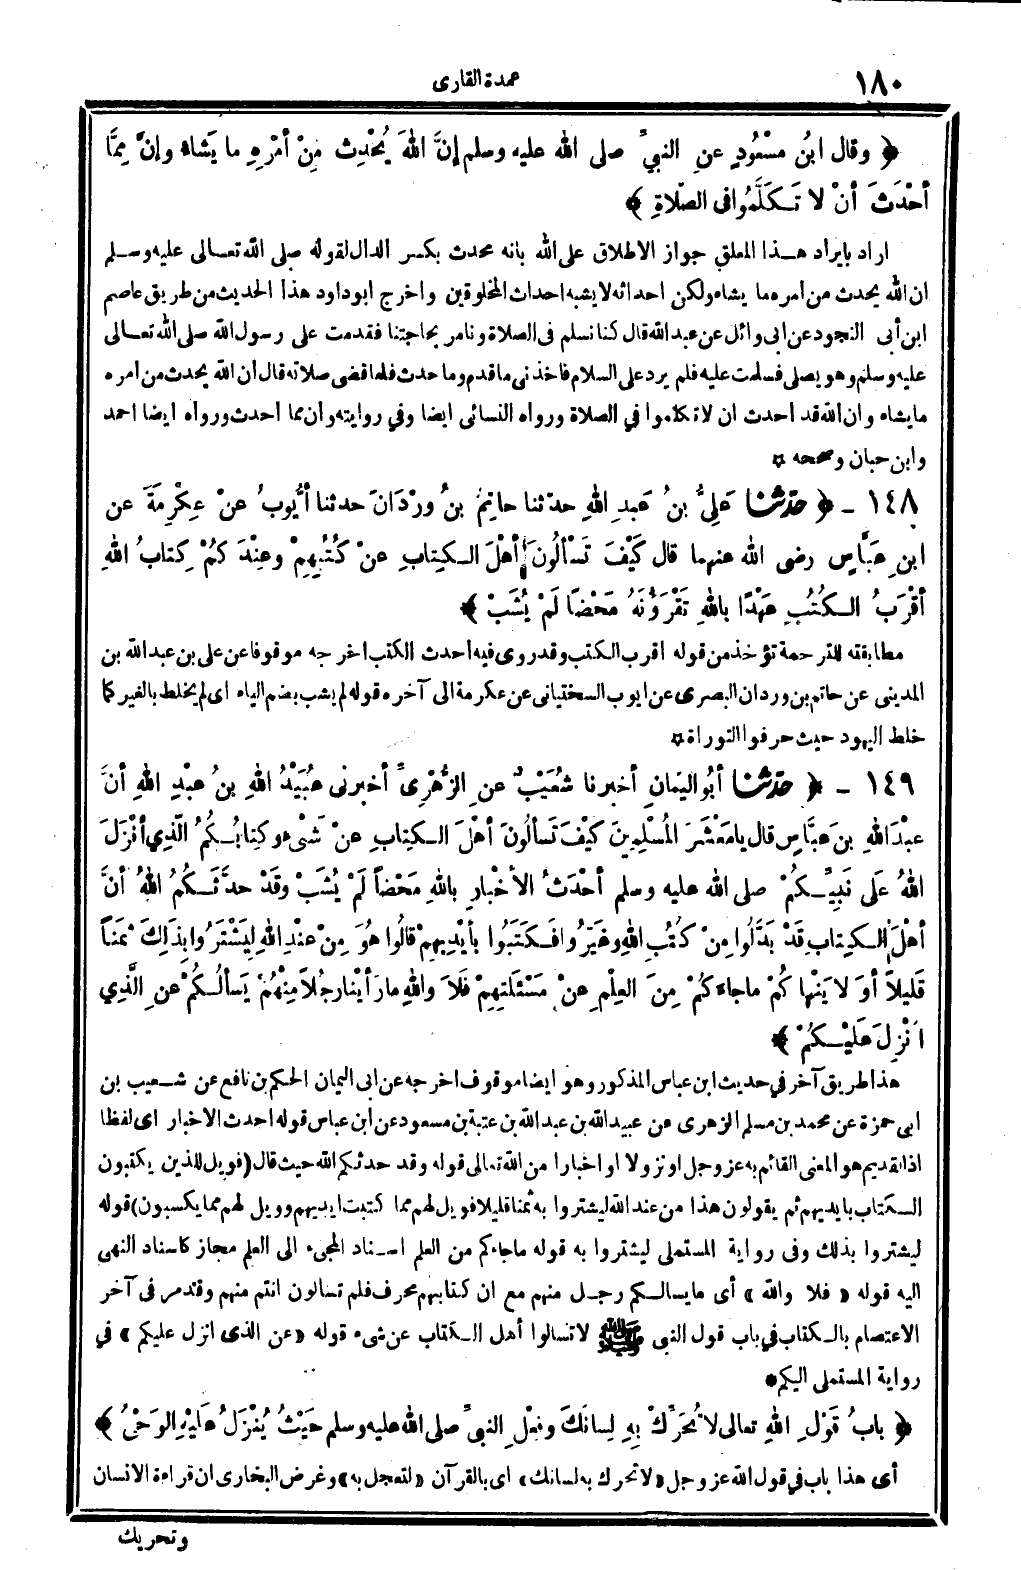 ١٨٠
عمدة القارى
﴿ وقال ابنُ مسْعُودٍ عنِ النبيِّ صلى الله عليه وسلم إنَّ اللهَ يُحْدِثُ مِنْ أمْرِهِ ما يَشاه وإنَّ مِمَّا
أحْدَثَ أنْ لا تَكَلَّمُوا فى الصّلاةِ ﴾
اراد بايراد هذا المعلق جواز الاطلاق على الله بانه محدث بكسر الدال لقوله صلى الله تعالى عليه وسلم
ان الله يحدث من امره ما يشاه ولكن احداثه لا يشبه احداث المخلوقين واخرج ابو داود هذا الحديث من طريق عاصم
ابن أبى النجود عن ابى وائل عن عبد الله قال كنا نسلم فى الصلاة ونامر بحاجتنا فقدمت على رسول الله صلى الله تعالى
عليه وسلم وهو يصلى فسلمت عليه فلم يرد على السلام فاخذنى ما قدم وما حدث فلما قضى صلاته قال ان الله يحدث من امره
ما يشاه وان الله قد احدث ان لا تكلموا في الصلاة ورواه النسائى ايضا وفي روايته وان مما أحدث ورواه ايضا احمد
وابن حبان وصححه ¤
١٤٨ ـ ﴿ حدّثنا عَلِيُّ بنُ عَبدِ اللهِ حدّثنا حاتِمُ بنُ ورْدَانَ حدثنا أيُّوبُ عنْ عِكْرِمَةَ عن
ابنِ عَبَّاسٍ رضى الله عنهما قال كَيْفَ تَسْألُونَ أهْلَ الكِتابِ عنْ كُتُبِهِمْ وعِنْدَكُمْ كِتابُ اللهِ
أقْرَبُ الكُتُبِ عَهْدًا باللهِ تَقْرَؤُنَهُ مَحْضًا لَمْ يُشَبْ ﴾
مطابقته للترجمة تؤخذ من قوله اقرب الكتب وقد روى فيه احدث الكتب اخرجه موقوفا عن على بن عبد الله بن
المدينى عن حاتم بن وردان البصرى عن ايوب السختيانى عن عكرمة الى آخره قوله لم يشب بضم الياه اى لم يخلط بالغير كما
خلط اليهود حيث حرفوا التوراة ¤
١٤٩ ـ ﴿ حدّثنا أبُو اليَمانِ أخبرنا شُعَيْبٌ عنِ الزُّهْرِىِّ أخبرنى عُبَيْدُ اللهِ بنُ عبْدِ اللهِ أنَّ
عبْدَ اللهِ بنَ عبَّاسٍ قال يا مَعْشَرَ المُسْلِمِينَ كَيْفَ تَسألُونَ أهْلَ الكِتابِ عنْ شَىْءٍ وكِتابُكُمُ الّذِي أنْزَلَ
اللهُ عَلَى نَبِيِّكُمْ صلى الله عليه وسلم أحْدَثُ الأخْبارِ باللهِ مَحْضاً لَمْ يُشَبْ وقَدْ حدَّثَكُمُ اللهُ أنَّ
أهْلَ الكِتابِ قَدْ بَدَّلُوا مِنْ كُتُبِ اللهِ وغَيَّرُوا فَكَتَبُوا بأيْدِيهِمْ قالُوا هُوَ مِنْ عنْدِ اللهِ لِيَشْتَرُوا بِذَلِكَ ثمَناً
قَلِيلاً أوَ لا يَنْها كُمْ ما جاءَكُمْ مِنَ العِلْمِ عنْ مَسْئلَتِهِمْ فَلاَ واللهِ ما رَأيْنا رجُلاً مِنْهُمْ يَسألُكُمْ عنِ الَّذِي
انْزِلَ عَلَيْكُمْ ﴾
هذا طريق آخر في حديث ابن عباس المذكور وهو ايضا موقوف اخرجه عن ابى اليمان الحكم بن نافع عن شعيب بن
ابى حمزة عن محمد بن مسلم الزهرى عن عبيد الله بن عبد الله بن عتبة بن مسعود عن ابن عباس قوله احدث الاخبار اى لفظا
اذا القديم هو المعنى القائم به عز وجل او نزولا او اخبارا من الله تعالى قوله وقد حدثكم الله حيث قال (فويل للذين يكتبون
الكتاب بايديهم ثم يقولون هذا من عند الله ليشتروا به ثمنا قليلا فويل لهم مما كتبت ايديهم وويل لهم مما يكسبون) قوله
ليشتروا بذلك وفى رواية المستملى ليشتروا به قوله ماجاءكم من العلم اسناد المجىء الى العلم مجاز كاسناد النهى
اليه قوله « فلا والله » أى ما يسالكم رجل منهم مع ان كتابهم محرف فلم تسالون انتم منهم وقد مر فى آخر
الاعتصام بالكتاب في باب قول النبى ﷺ لا تسالوا أهل الكتاب عن شىء قوله «عن الذى انزل عليكم » في
رواية المستملى اليكم*
﴿ بابُ قَوْلِ اللهِ تعالى لا تُحَرِّكْ بِهِ لِسانَكَ وفِعْلِ النبىِّ صلى الله عليه وسلم حَيْثُ يُنْزَلُ عَلَيْهِ الوَحْىُ ﴾
أى هذا باب في قول الله عز وجل «لا تحرك به لسانك» اى بالقرآن «لتعجل به» وغرض البخارى ان قراءة الانسان
وتحريك